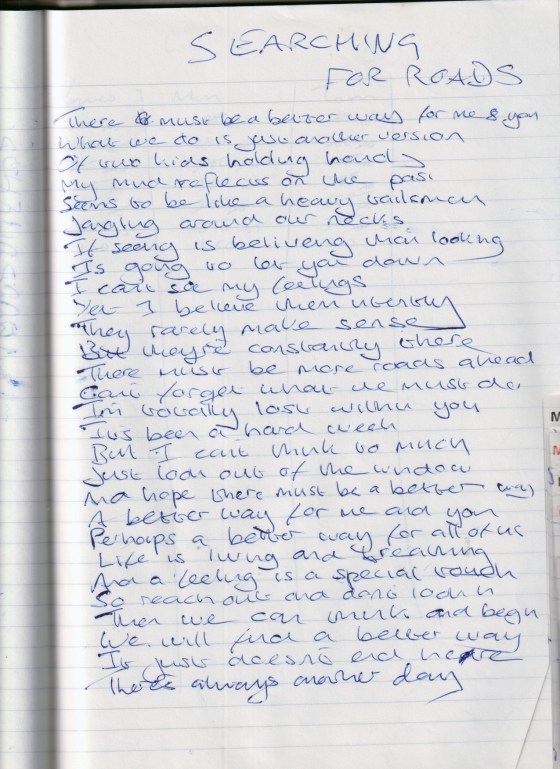 SEARCHING
FOR ROADS
There must be a better way for me & you
What we do is just another version
Of two kids holding hands
My mind reflects on the past
Seems to be like a heavy tailsman
Jangling around our necks
If seeing is beliveng than looking
Is going to let you down
I cant see my feelings
Yet I believe them intently
They rarely make sense
But they're constantly there
There must be more roads ahead
Cant forget what we must do
I'm totally lost within you
It's been a hard week
But I cant think to much
Just look out of the window
And hope there must be a better way
A better way for me and you
Perhaps a better way for all of us
Life is living and breathing
And a feeling is a special touch
So reach out and dont look in
Then we can think and begin
We will find a better way
It just doesnt end here
Theres always another day